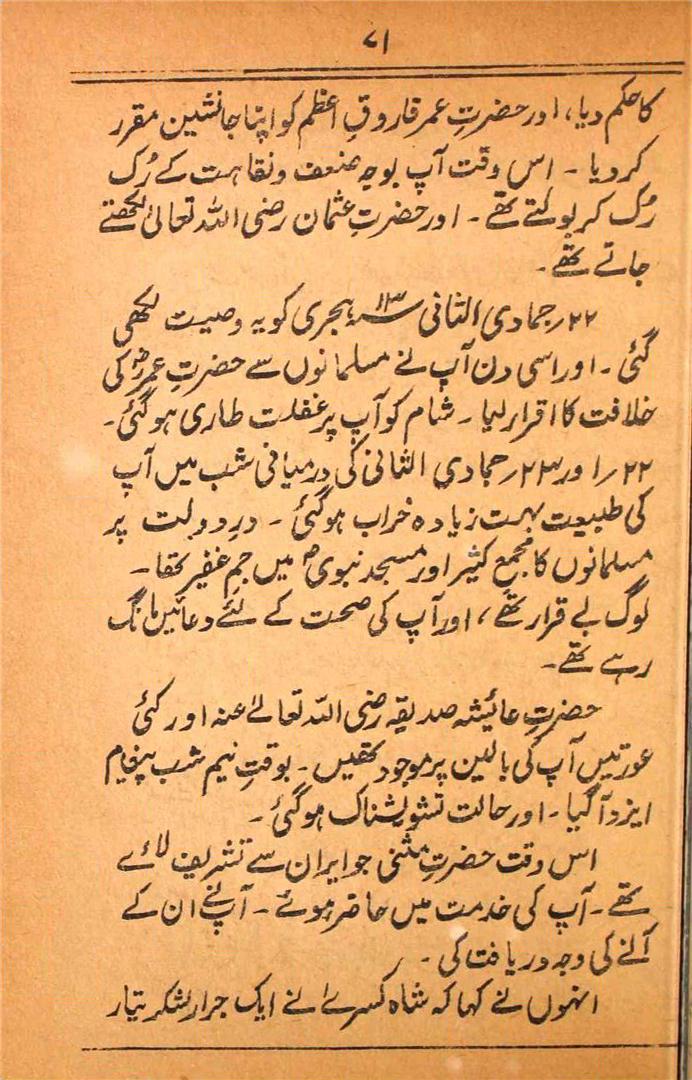 ۷۱
کا حکم دیا، اور حضرتِ عمر فاروقِ اعظم کو اپنا جانشین مقرر
کر دیا ۔ اس وقت آپ بوجہ ضعف و نقاہت کے رُک
رُک کر بولتے تھے ۔ اور حضرتِ عثمان رضی اللہ تعالیٰ لکھتے
جاتے تھے ۔
۲۲؍ جمادی الثانی ۱۳ ہجری کو یہ وصیت لکھی
گئی ۔ اور اسی دن آپ نے مسلمانوں سے حضرتِ عمرؓ کی
خلافت کا اقرار لیا ۔ شام کو آپ پر غفلت طاری ہو گئی ۔
۲۲؍ اور ۲۳؍ جمادی الثانی کی درمیانی شب میں آپ
کی طبیعت بہت زیادہ خراب ہو گئی ۔ درِ دولت پر
مسلمانوں کا مجمع کثیر اور مسجد نبویؐ میں جمِ غفیر تھا ۔
لوگ بے قرار تھے ، اور آپ کی صحت کے لئے دعائیں مانگ
رہے تھے ۔
حضرتِ عائیشہ صدیقہ رضی اللہ تعالےٰ عنہ اور کئی
عورتیں آپ کی بالین پر موجود تھیں ۔ بوقتِ نیم شب پیغام
ایزد آ گیا ۔ اور حالت تشویشناک ہو گئی ۔
اس وقت حضرتِ مثنی جو ایران سے تشریف لائے
تھے ۔ آپ کی خدمت میں حاضر ہوئے ۔ آپ نے ان کے
آنے کی وجہ دریافت کی ۔
انہوں نے کہا کہ شاہ کسرےٰ نے ایک جرار لشکر تیار